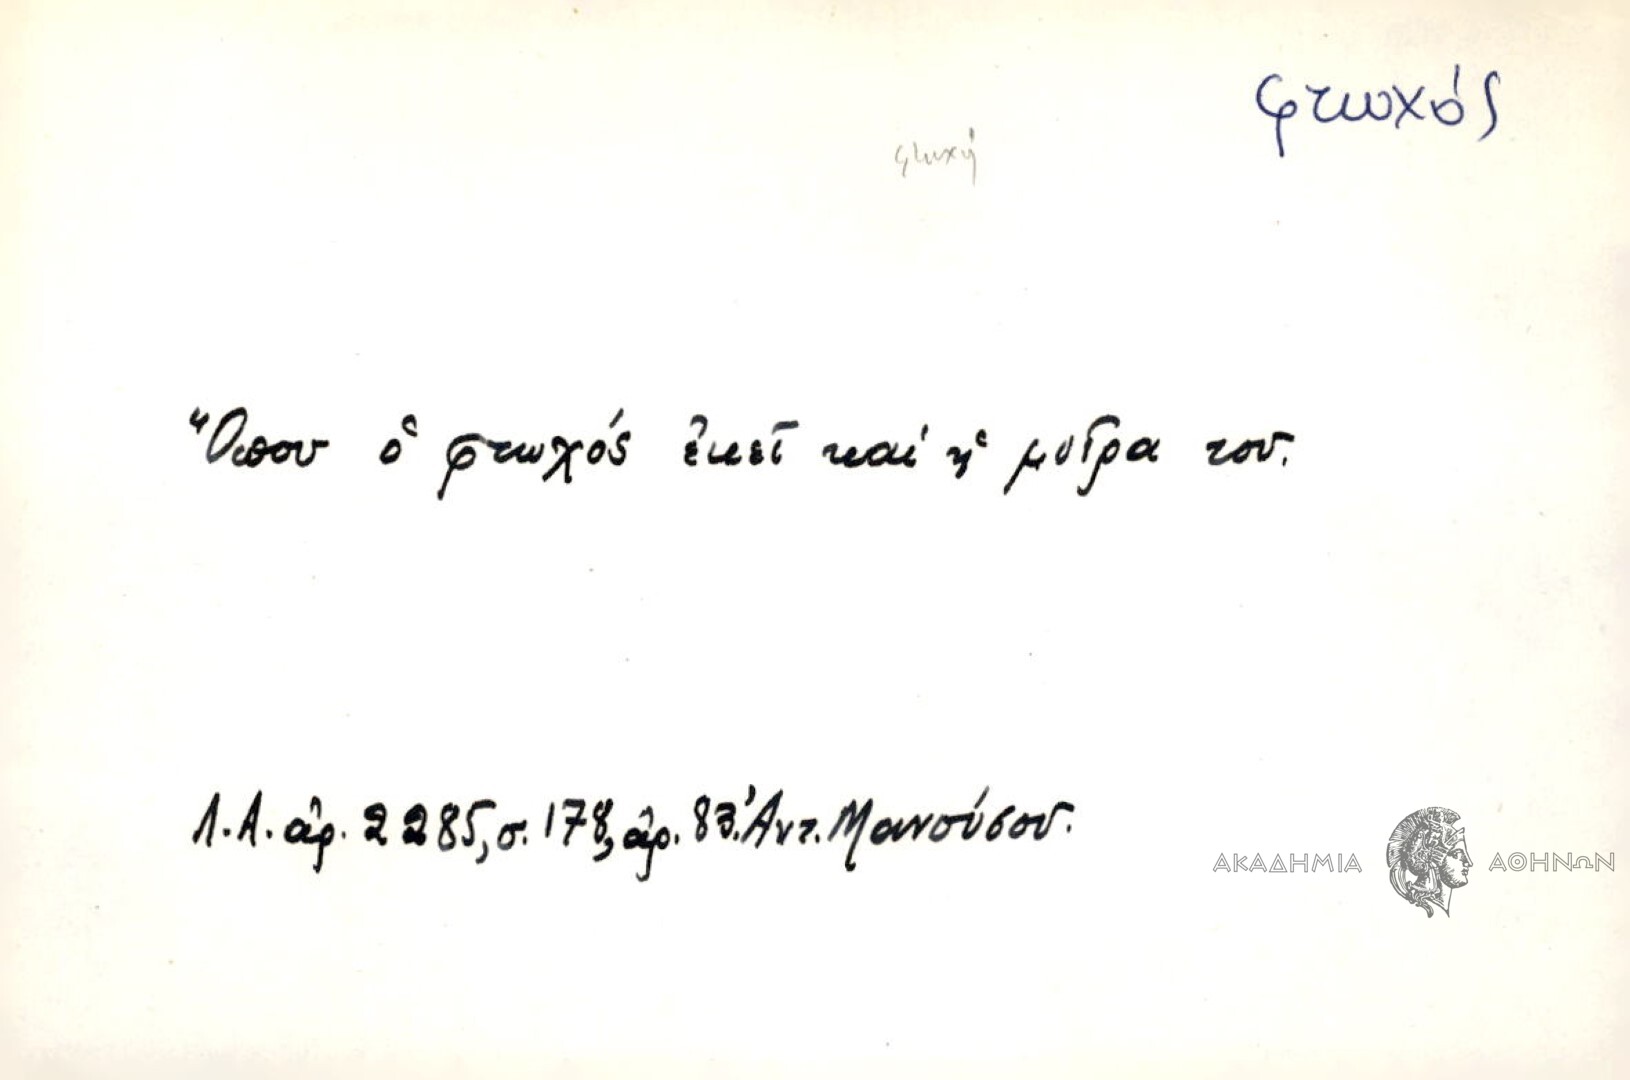 φτωχός
φτωχή
Ὅπου ὁ φτωχός ἐκεῖ καί ἡ μοῖρα του.
Λ.Α. ἀρ. 2285, σ. 178, ἀρ. 83. Ἀντ. Μανούσου.
ΑΚΑΔΗΜΙΑ ΑΘΗΝΩΝ